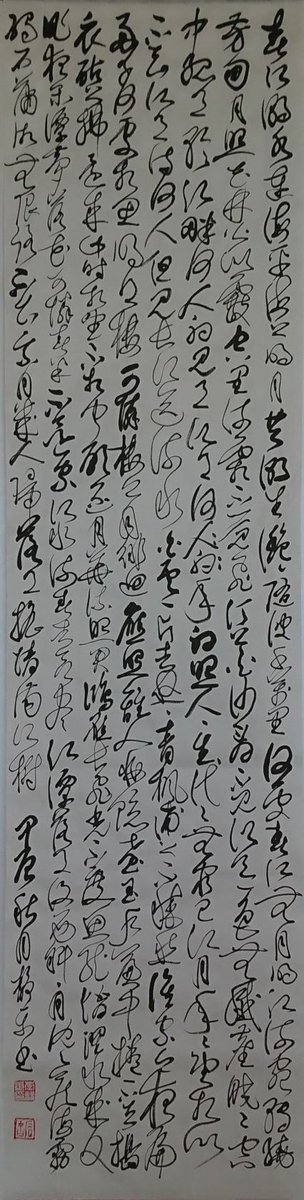 春江潮水連海平海上明月共潮生灧灧隨波千萬里何處春江無月明江流宛轉繞
芳甸月照花林皆似霰空里流霜不覺飛汀上白沙看不見江天一色無纖塵皎皎空
中孤月輪江畔何人初見月江月何年初照人人生代代無窮已江月年年望相似
不知江月待何人但見長江送流水白雲一片去悠悠青楓浦上不勝愁誰家今夜扁
舟子何處相思明月樓可憐樓上月徘徊應照離人妝鏡臺玉戶簾中捲不去搗
衣砧上拂還來此時相望不相聞願逐月華流照君鴻雁長飛光不度魚龍潛躍水成文
昨夜閑潭夢落花可憐春半不還家江水流春去欲盡江潭落月復西斜斜月沉沉藏海霧
碣石瀟湘無限路不知乘月幾人歸落月搖情滿江樹 秋月 書